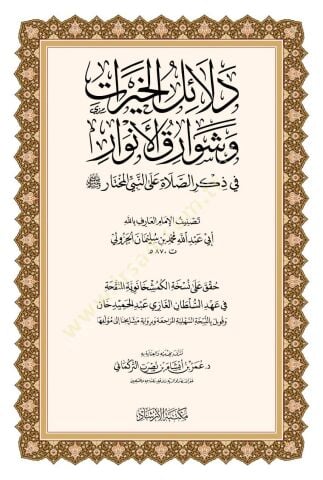 دلائل الخيرات
وشوارق الأنوار
في ذكر الصلاة على النبي المختار ﷺ
تصنيف الإمام العارف بالله
أبي عبد الله محمد بن سليمان الجزولي
ت ٨٧٠ هـ
حقق على نسخة الكمشخانوية المنقحة
في عهد السلطان الغازي عبد الحميد خان
وقوبل بالنسخة السهلية المراجعة وبرواية مشايخنا إلى مؤلفها
د. عمر بن
مكتبة الإرشاد